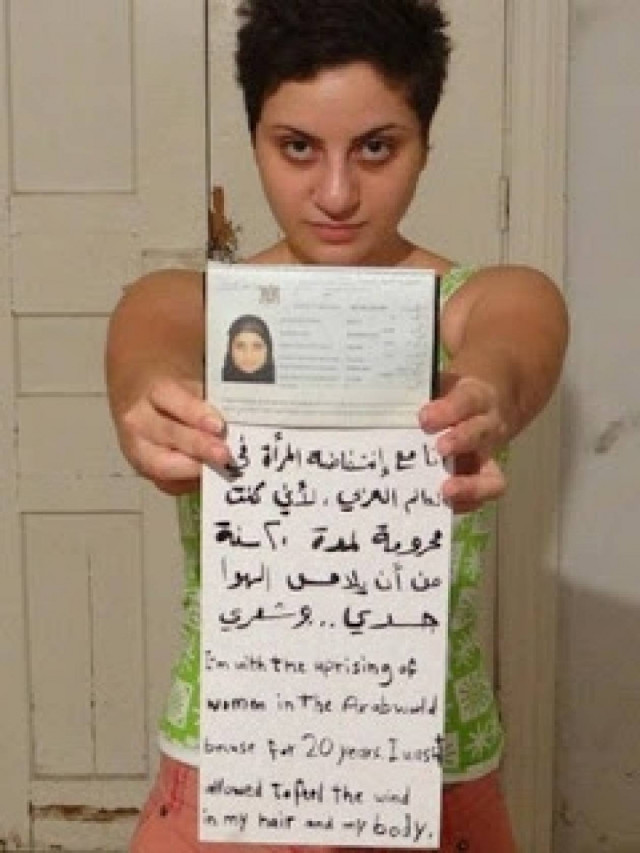 أنا مع إنتفاضة المرأة في
العالم العربي، لأني كنت
محرومة لمدة ٢٠ سنة
من أن يلامس الهوا
جسدي.. وشعري
I'm with the uprising of
women in The Arab world
because for 20 years. I wasn't
allowed to feel the wind
in my hair and my body.